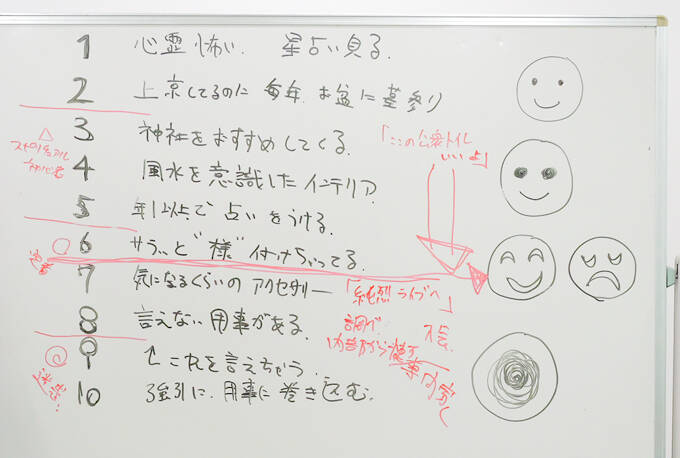 1 心霊怖い 星占い見る.
2 上京してるのに 毎年 お盆に墓参り
3 神社をおすすめしてくる.
△
スピリチュアル
初心者
「ここの公衆トイレ
いいよ」
4 風水を意識したインテリア.
5 年1以上で占いをうける.
6 サラッと"様"付けちゃってる.
7 気になるくらいのアクセサリー
「純烈ライブへ」
8 言えない用事がある.
調べ
9 ↑これを言えちゃう.
迷惑:
10 強引に.用事に巻き込む.